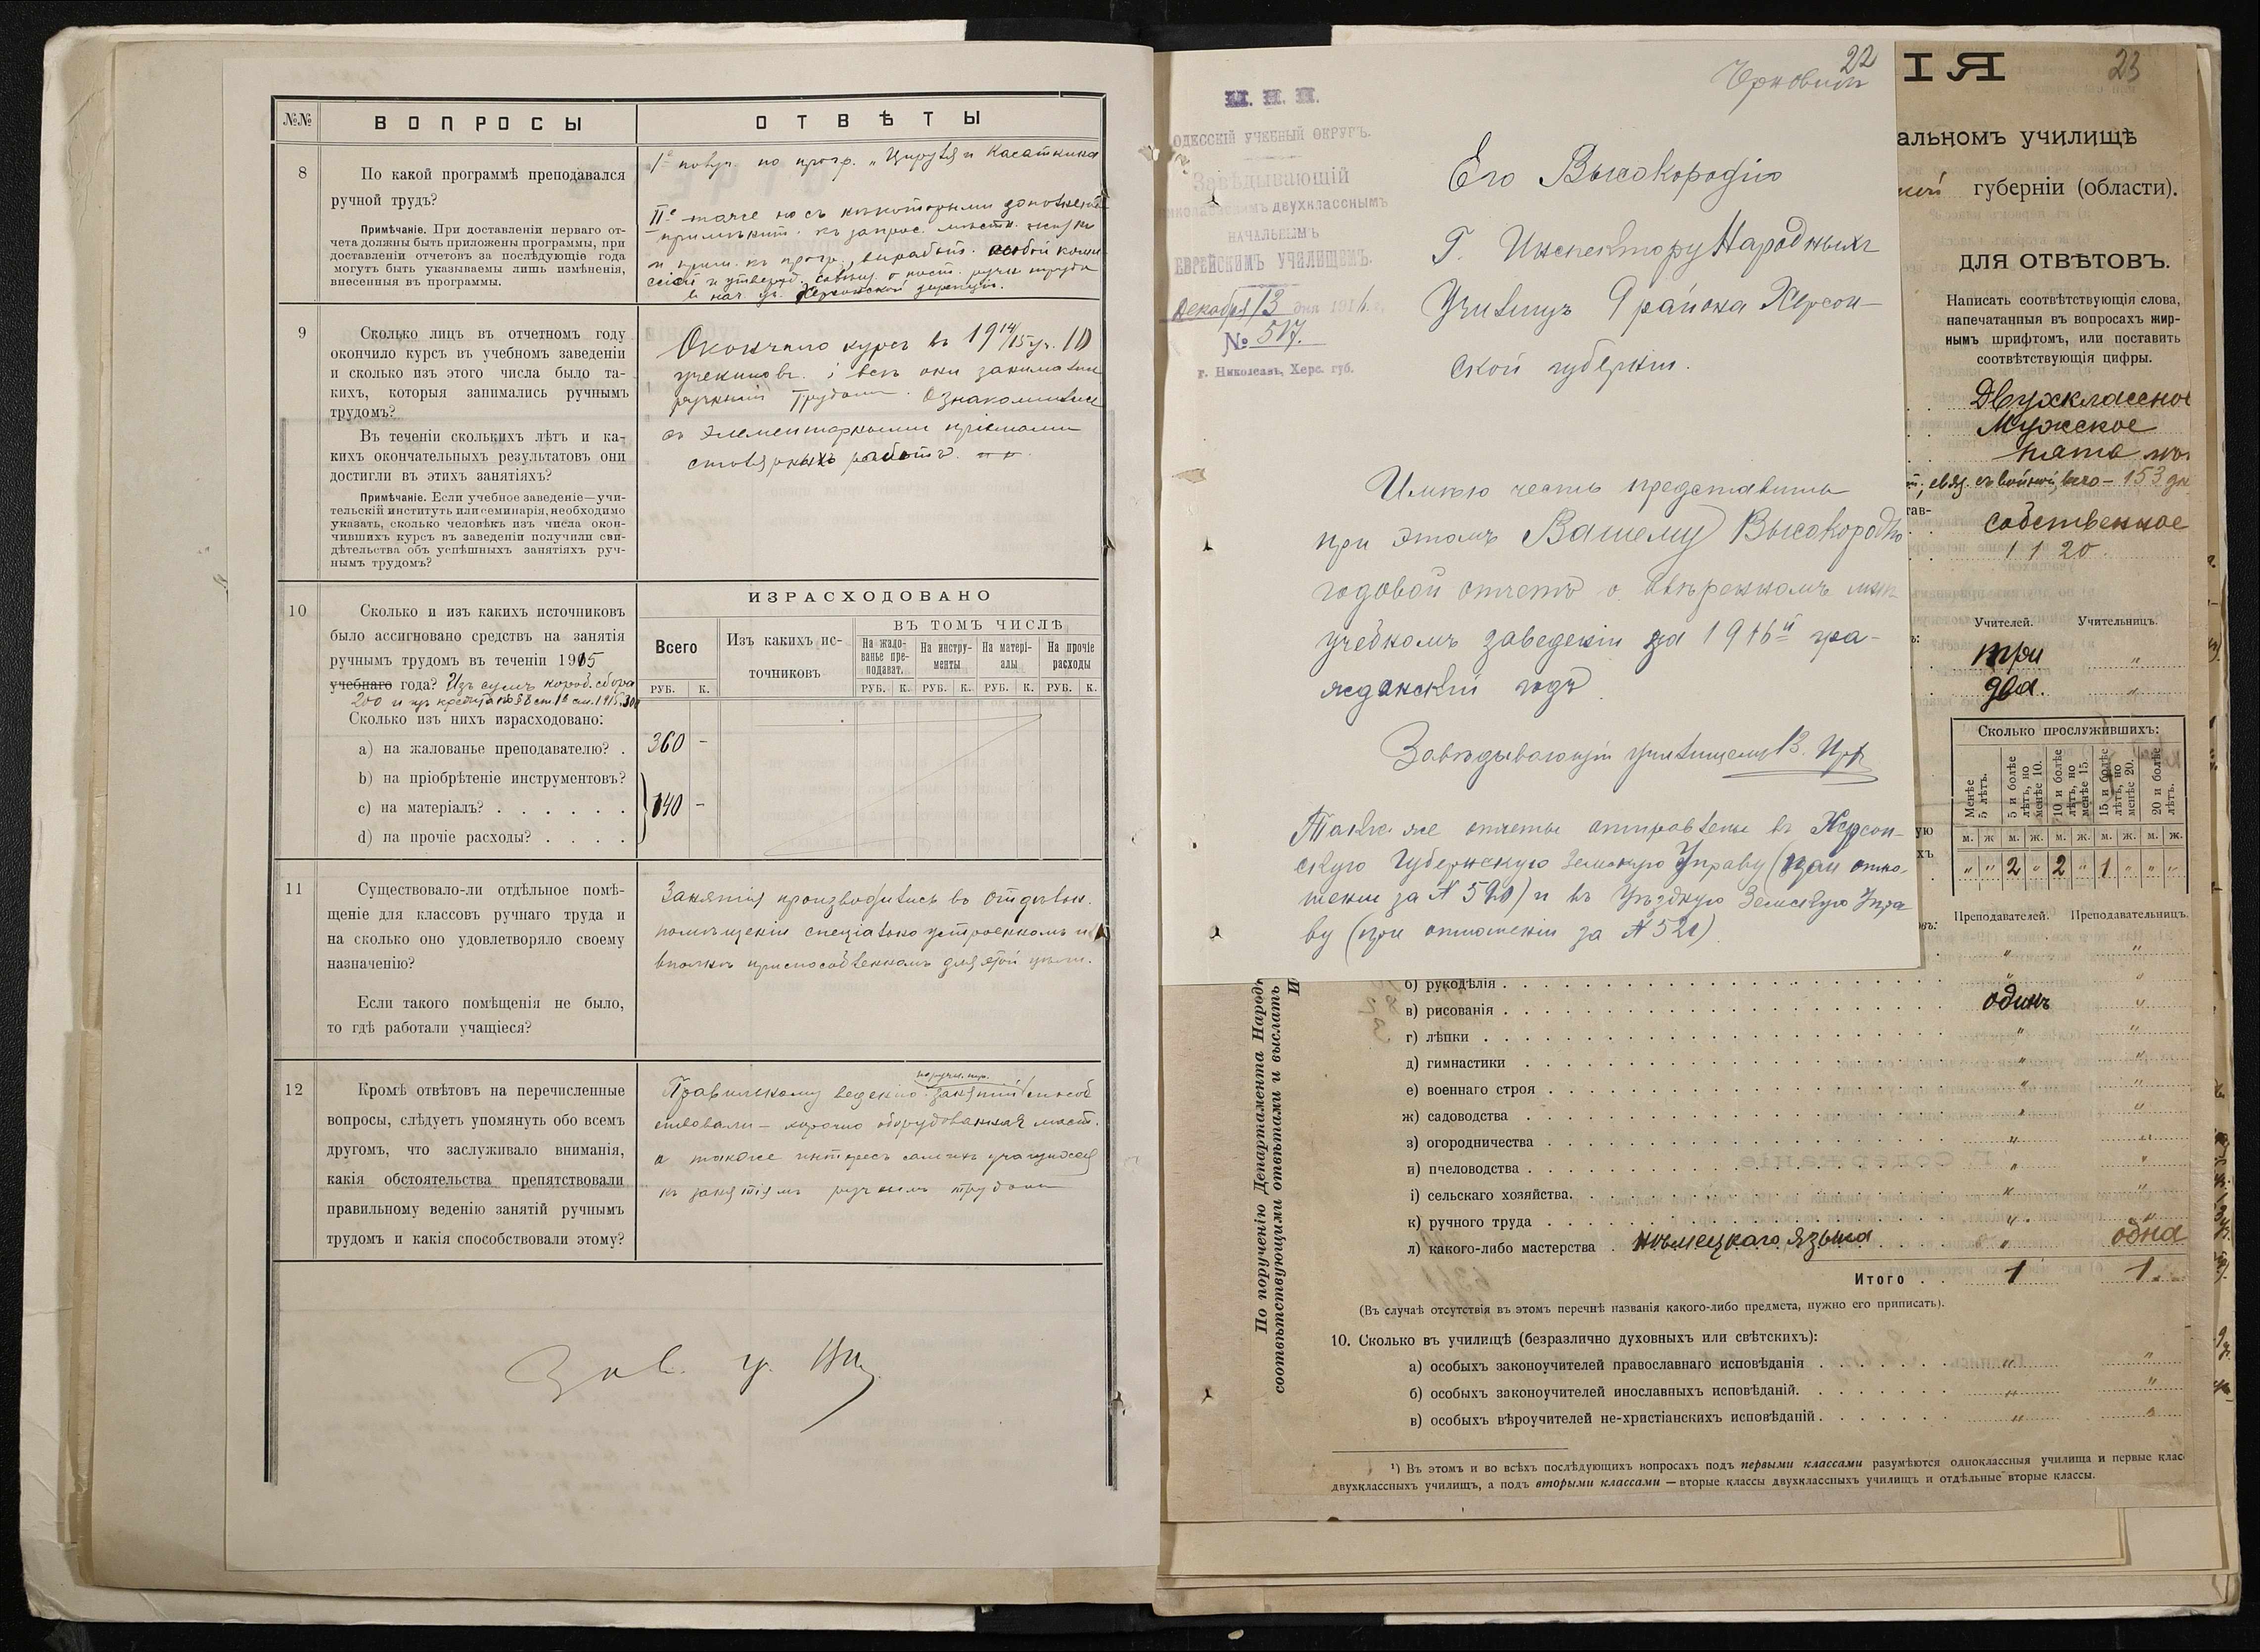 №№
ВОПРОСЫ
ОТВѢТЫ
8
По какой программѣ преподавался
ручной трудъ?
Примѣчаніе. При доставленіи перваго от-
чета должны быть приложены программы, при
доставленіи отчетовъ за послѣдующіе года
могутъ быть указываемы лишь измѣненія,
внесенныя въ программы.
по прогр. „Цируля и Касаткина
II е тоже но съ нѣкоторыми дополнен.
къ запрос. мѣстн. жизни
и прим. къ прогр., выработ. особой комис
сіей и утвержд. совѣщ. о пост. ручн. труда
въ нач. уч. Херсонской дирекціи.
9
Сколько лицъ въ отчетномъ году
окончило курсъ въ учебномъ заведеніи
и сколько изъ этого числа было та-
кихъ, которыя занимались ручнымъ
трудомъ?
Въ теченіи сколькихъ лѣтъ и ка-
кихъ окончательныхъ результатовъ они
достигли въ этихъ занятіяхъ?
Примѣчаніе. Если учебное заведеніе—учи-
тельскій институтъ или семинарія, необходимо
указать, сколько человѣкъ изъ числа окон-
чившихъ курсъ въ заведеніи получили сви-
дѣтельства объ успѣшныхъ занятіяхъ руч-
нымъ трудомъ?
Окончило курсъ въ 19 14/15 уч. 10
учениковъ. и всѣ они занимались
ручнымъ трудомъ. Ознакомились
съ элементарными пріемами
столярныхъ работъ.
10
Сколько и изъ какихъ источниковъ
было ассигновано средствъ на занятія
ручнымъ трудомъ въ теченіи 1915
учебнаго года? Изъ суммъ короб. сбора
200 и изъ кредита по § 8 ст. 1 см. 1915 300
Сколько изъ нихъ израсходовано:
a) на жалованье преподавателю? .
b) на пріобрѣтеніе инструментовъ?
c) на матеріалъ? . . . . . .
d) на прочіе расходы? . . . .
ИЗРАСХОДОВАНО
Всего
Изъ какихъ ис-
точниковъ
ВЪ ТОМЪ ЧИСЛѢ
На жало-
ванье пре-
подават.
На инстру-
менты
На матері-
алы
На прочіе
расходы
РУБ. К. РУБ. К. РУБ. К. РУБ. К. РУБ. К.
360 –
140 –
11
Существовало-ли отдѣльное помѣ-
щеніе для классовъ ручнаго труда и
на сколько оно удовлетворяло своему
назначенію?
Если такого помѣщенія не было,
то гдѣ работали учащіеся?
Занятія производились въ отдѣльн.
помѣщеніи спеціально устроенномъ и
вполнѣ приспособленномъ для этой цѣли.
12
Кромѣ отвѣтовъ на перечисленные
вопросы, слѣдуетъ упомянуть обо всемъ
другомъ, что заслуживало вниманія,
какія обстоятельства препятствовали
правильному веденію занятій ручнымъ
трудомъ и какія способствовали этому?
Правильному веденію занятій способ
ствовали – хорошо оборудованная маст.
а также интересъ самихъ учащихся
къ занятіямъ ручнымъ трудомъ
Зав. у.
22
Черновикъ
М. Н. П.
ОДЕССКІЙ УЧЕБНЫЙ ОКРУГЪ.
Завѣдывающій
Николаевскимъ двухкласснымъ
НАЧАЛЬНЫМЪ
ЕВРЕЙСКИМЪ УЧИЛИЩЕМЪ.
Декабря 13 дня 1916 г.
№ 517.
г. Николаевъ, Херс. губ.
Его Высокородію
Г. Инспектору Народныхъ
Училищъ 9 района Херсон-
ской губерніи.
Имѣю честь представить
при этомъ Вашему Высокородію
годовой отчетъ о ввѣренномъ мнѣ
учебномъ заведеніи за 1916 й гра-
жданскій годъ.
Завѣдывающій училищемъ В.
Такіе же отчеты отправлены въ Херсон-
скую Губернскую Земскую Управу (при отно-
шеніи за № 520) и въ Уѣздную Земскую Упра
ву (при отношеніи за № 521).
23
ІЯ
альномъ училищѣ
губерніи (области).
ДЛЯ ОТВѢТОВЪ.
Написать соотвѣтствующія слова,
напечатанныя въ вопросахъ жир-
нымъ шрифтомъ, или поставить
соотвѣтствующія цифры.
Двухклассное
Мужское
связ. съ войной, всего – 153 дн
собственное
1120
Учителей. Учительницъ.
три „
два. „
Сколько прослужившихъ:
Менѣе 5 лѣтъ.
5 и болѣе лѣтъ, но менѣе 10.
10 и болѣе лѣтъ, но менѣе 15.
15 и болѣе лѣтъ, но менѣе 20.
20 и болѣе лѣтъ.
м. ж м. ж. м. ж. м. ж. м. ж.
„ „ 2 „ 2 „ 1 „ „ „
Преподавателей. Преподавательницъ.
По порученію Департамента Народ
соотвѣтствующими отвѣтами и выслать
б) рукодѣлія . . . „ „
в) рисованія . . . одинъ „
г) лѣпки . . . „ „
д) гимнастики . . . „ „
е) военнаго строя . . . „ „
ж) садоводства . . . „ „
з) огородничества . . . „ „
и) пчеловодства . . . „ „
і) сельскаго хозяйства. . . . „ „
к) ручного труда . . . „ „
л) какого-либо мастерства . нѣмецкаго языка „ одна
Итого . . 1 1
(Въ случаѣ отсутствія въ этомъ перечнѣ названія какого-либо предмета, нужно его приписать).
10. Сколько въ училищѣ (безразлично духовныхъ или свѣтскихъ):
а) особыхъ законоучителей православнаго исповѣданія . . . „ „
б) особыхъ законоучителей инославныхъ исповѣданій. . . . „ „
в) особыхъ вѣроучителей не-христіанскихъ исповѣданій . . . „ „
¹) Въ этомъ и во всѣхъ послѣдующихъ вопросахъ подъ первыми классами разумѣются одноклассныя училища и первые клас
двухклассныхъ училищъ, а подъ вторыми классами — вторые классы двухклассныхъ училищъ и отдѣльные вторые классы.